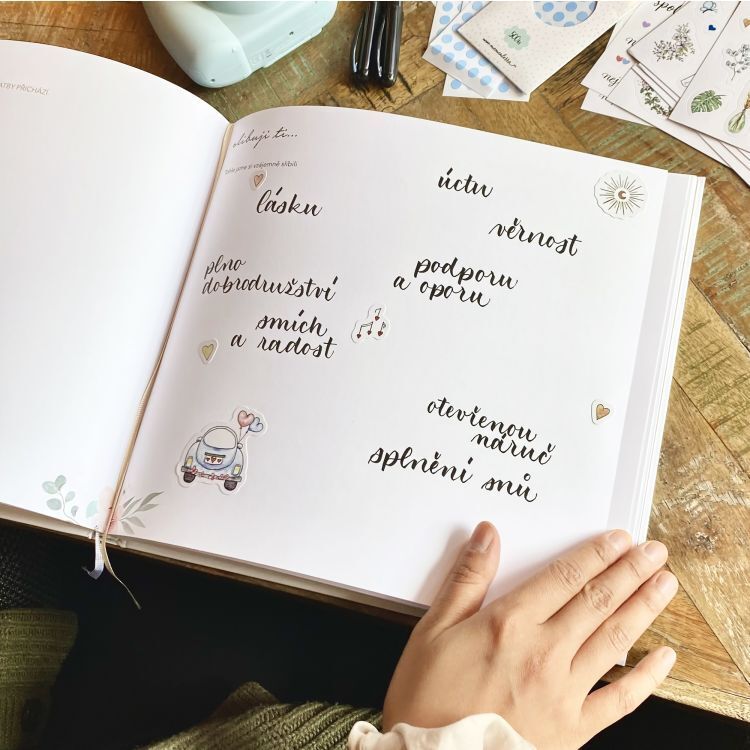 slibuji ti...
Tohle jsme si vzájemně slíbili
lásku
úctu
věrnost
plno
dobrodružství
podporu
a oporu
smích
a radost
otevřenou
náruč
splnění snů